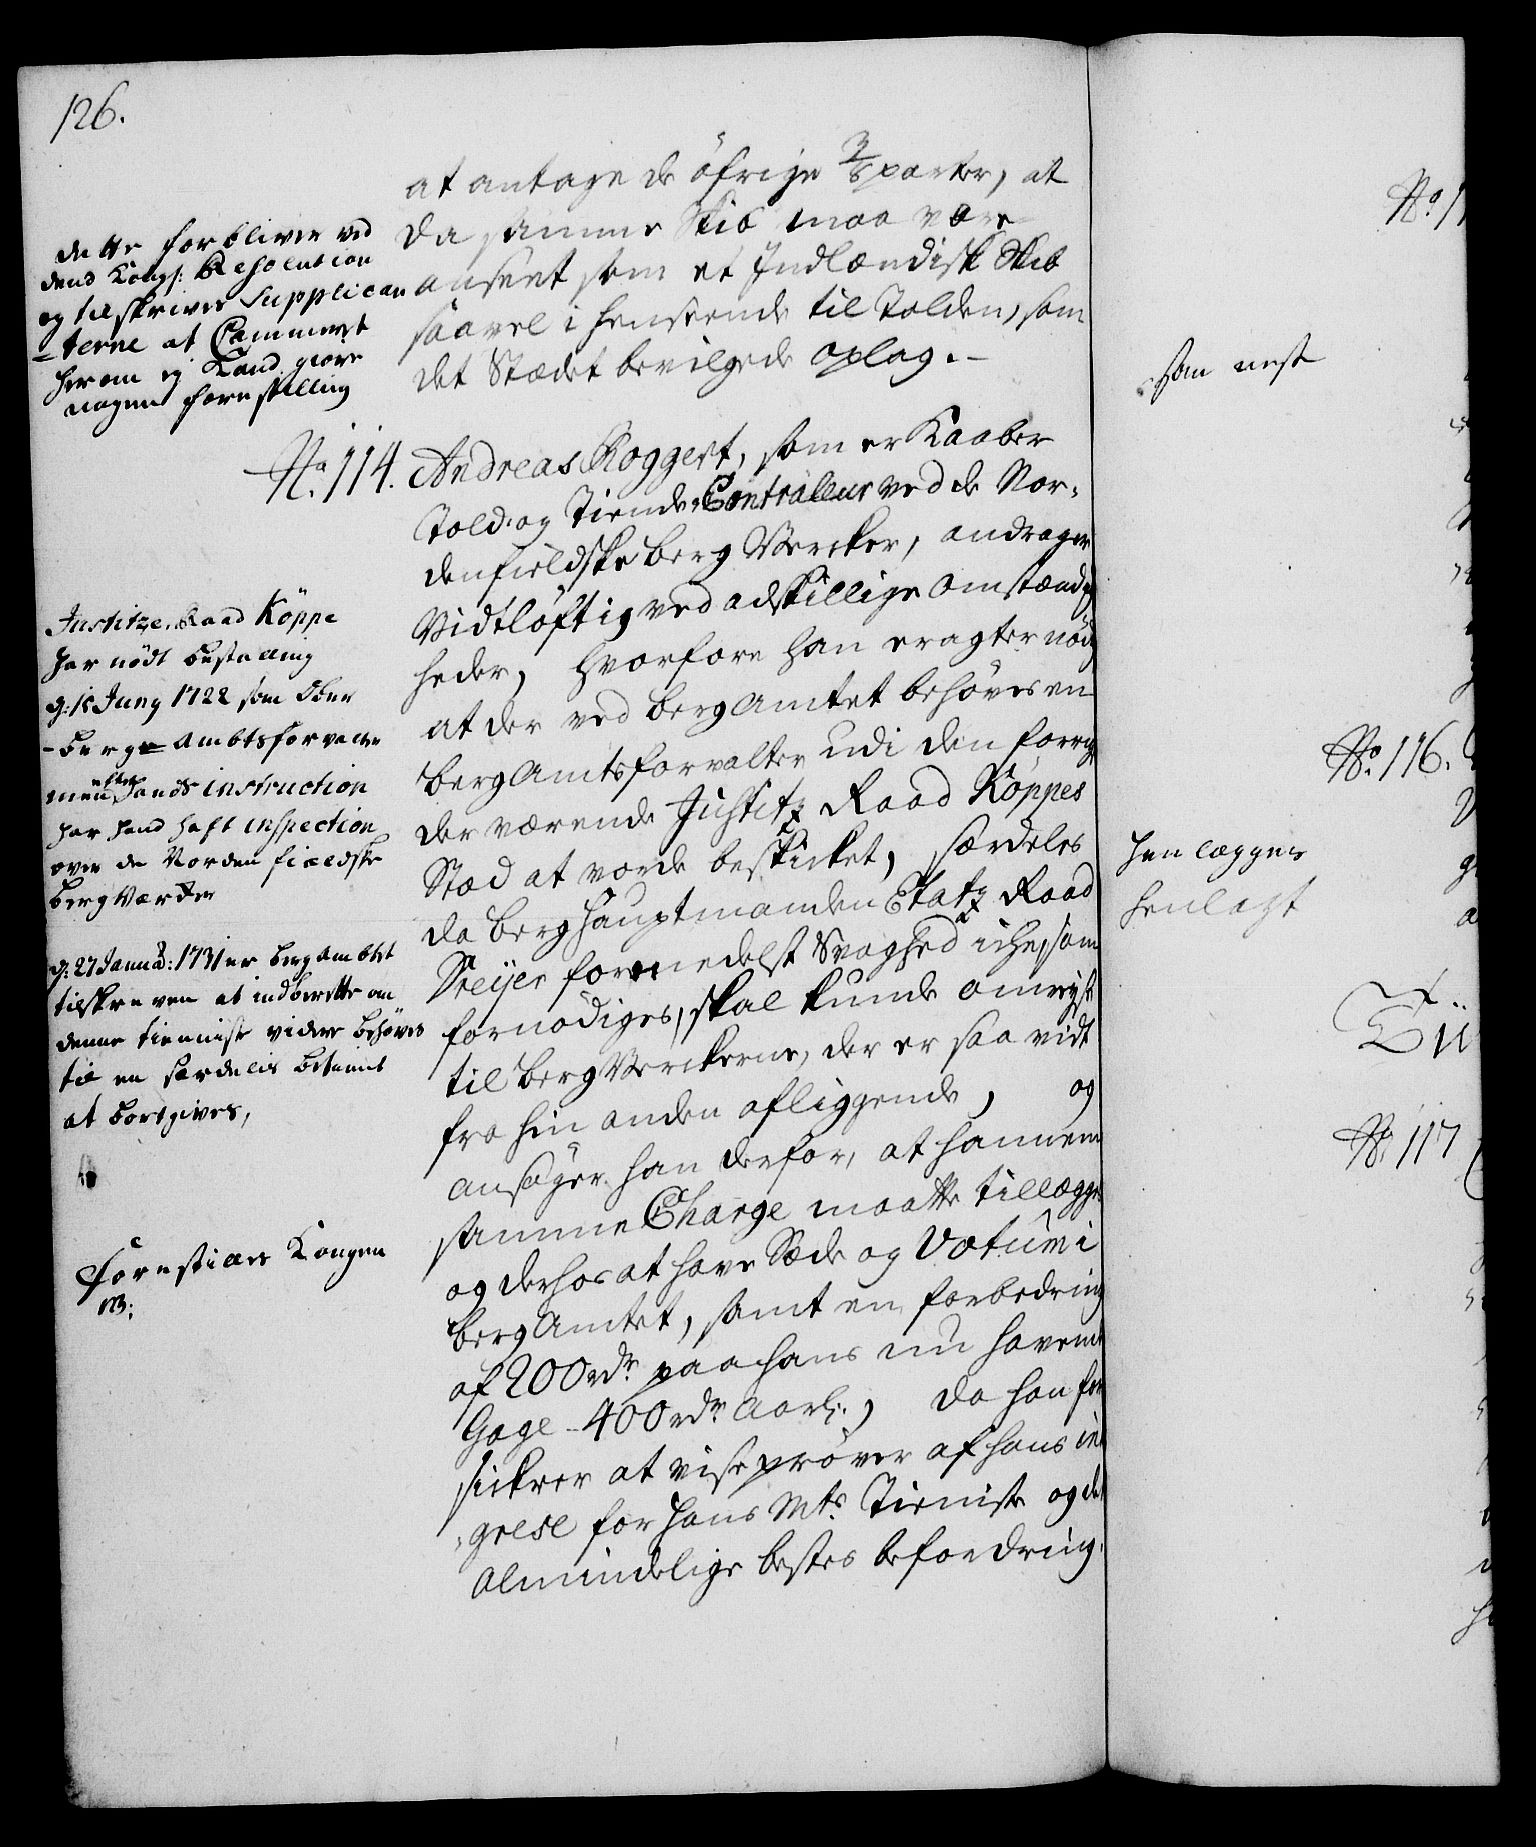 126.
at antage de öfrige 3/8 parter, at
da samme Skib maa være
anseet som et Indlændisk Skib
saavel i henseende til Tolden, som
det Stædet bevilgede oplag.-
dette forbliver ved
dend Kongl: Resolution
og tilskrives Supplican
-terne at Cammeret
herom ej Kand giøre
nogen forestilling
No. 114. Andreas Roggert, som er Kaaber
Told- og Tiende-Contralleur ved de Nor-
denfieldske Berg Wercker, andrager
Vidtløftig ved adskillige Omstændig
heder, hvorfore han eragter nød
at der ved Berg Amtet behöves en
Berg Amtsforvalter udi den forrige
der værende Justitz Raad Köppes
Stæd at vorde beskicket, særdeles
da Berg Hauptmanden Etatz Raad
Sreijer formedelst Svaghed icke, som
fornödiges, skal kunde omreyse
til Berg Werckerne, der er saa vidt
fra hin anden afliggende, og
ansöger han derfor, at hannem
samme Charge maatte tillægges
og derhos at have Sæde og Votum i
Berg Amtet, samt en forbedring
af 200 rdr paa hans nu havende
Gage - 400 rdr Aarl:, da han for
sickrer at vise pröver af hans in
-grese for Hans Mts Tieniste og det
Almindelige bestes befordring.
Justitz Raad Köppe
har nödt bestalling
d: 15 Juny 1722 som Ober
-berg Ambtsforvalter
men efter hands instruction
har hand haft inspection
over de Nordenfieldske
Berg Værcker
d: 27 Janua: 1731 er berg ambtet
tilskreven at indberette om
denne tienniste videre behöves
til en særdelis betient
at bortgives,
Forestilles Kongen
NB:
No. 11
som nest
No. 116.
henlægges
henlagt
No. 117